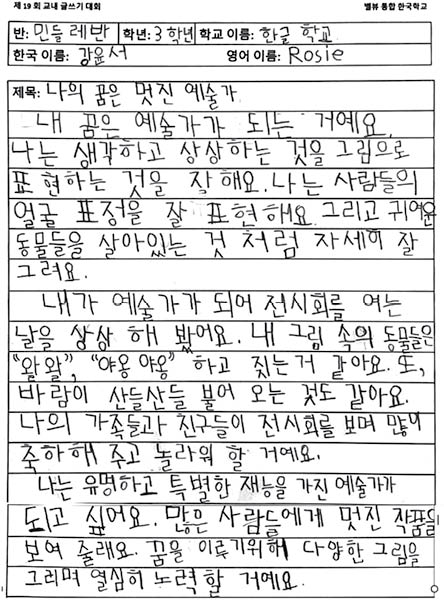 제 19 회 교내 글쓰기 대회 벨뷰 통합 한국학교
반: 민들레반 학년: 3학년 학교 이름: 한글 학교
한국 이름: 강윤서 영어 이름: Rosie
제목: 나의 꿈은 멋진 예술가
내 꿈은 예술가가 되는 거예요.
나는 생각하고 상상하는 것을 그림으로
표현하는 것을 잘해요. 나는 사람들의
얼굴 표정을 잘 표현해요. 그리고 귀여운
동물들을 살아있는 것 처럼 자세히 잘
그려요.
내가 예술가가 되어 전시회를 여는
날을 상상 해 봤어요. 내 그림 속의 동물들은
"왈왈", "야옹 야옹" 하고 짖는거 같아요. 또,
바람이 산들산들 불어 오는 것도 같아요.
나의 가족들과 친구들이 전시회를 보며 많이
축하해 주고 놀라워 할 거예요.
나는 유명하고 특별한 재능을 가진 예술가가
되고 싶어요. 많은 사람들에게 멋진 작품을
보여 줄래요. 꿈을 이루기위해 다양한 그림을
그리며 열심히 노력할 거예요.